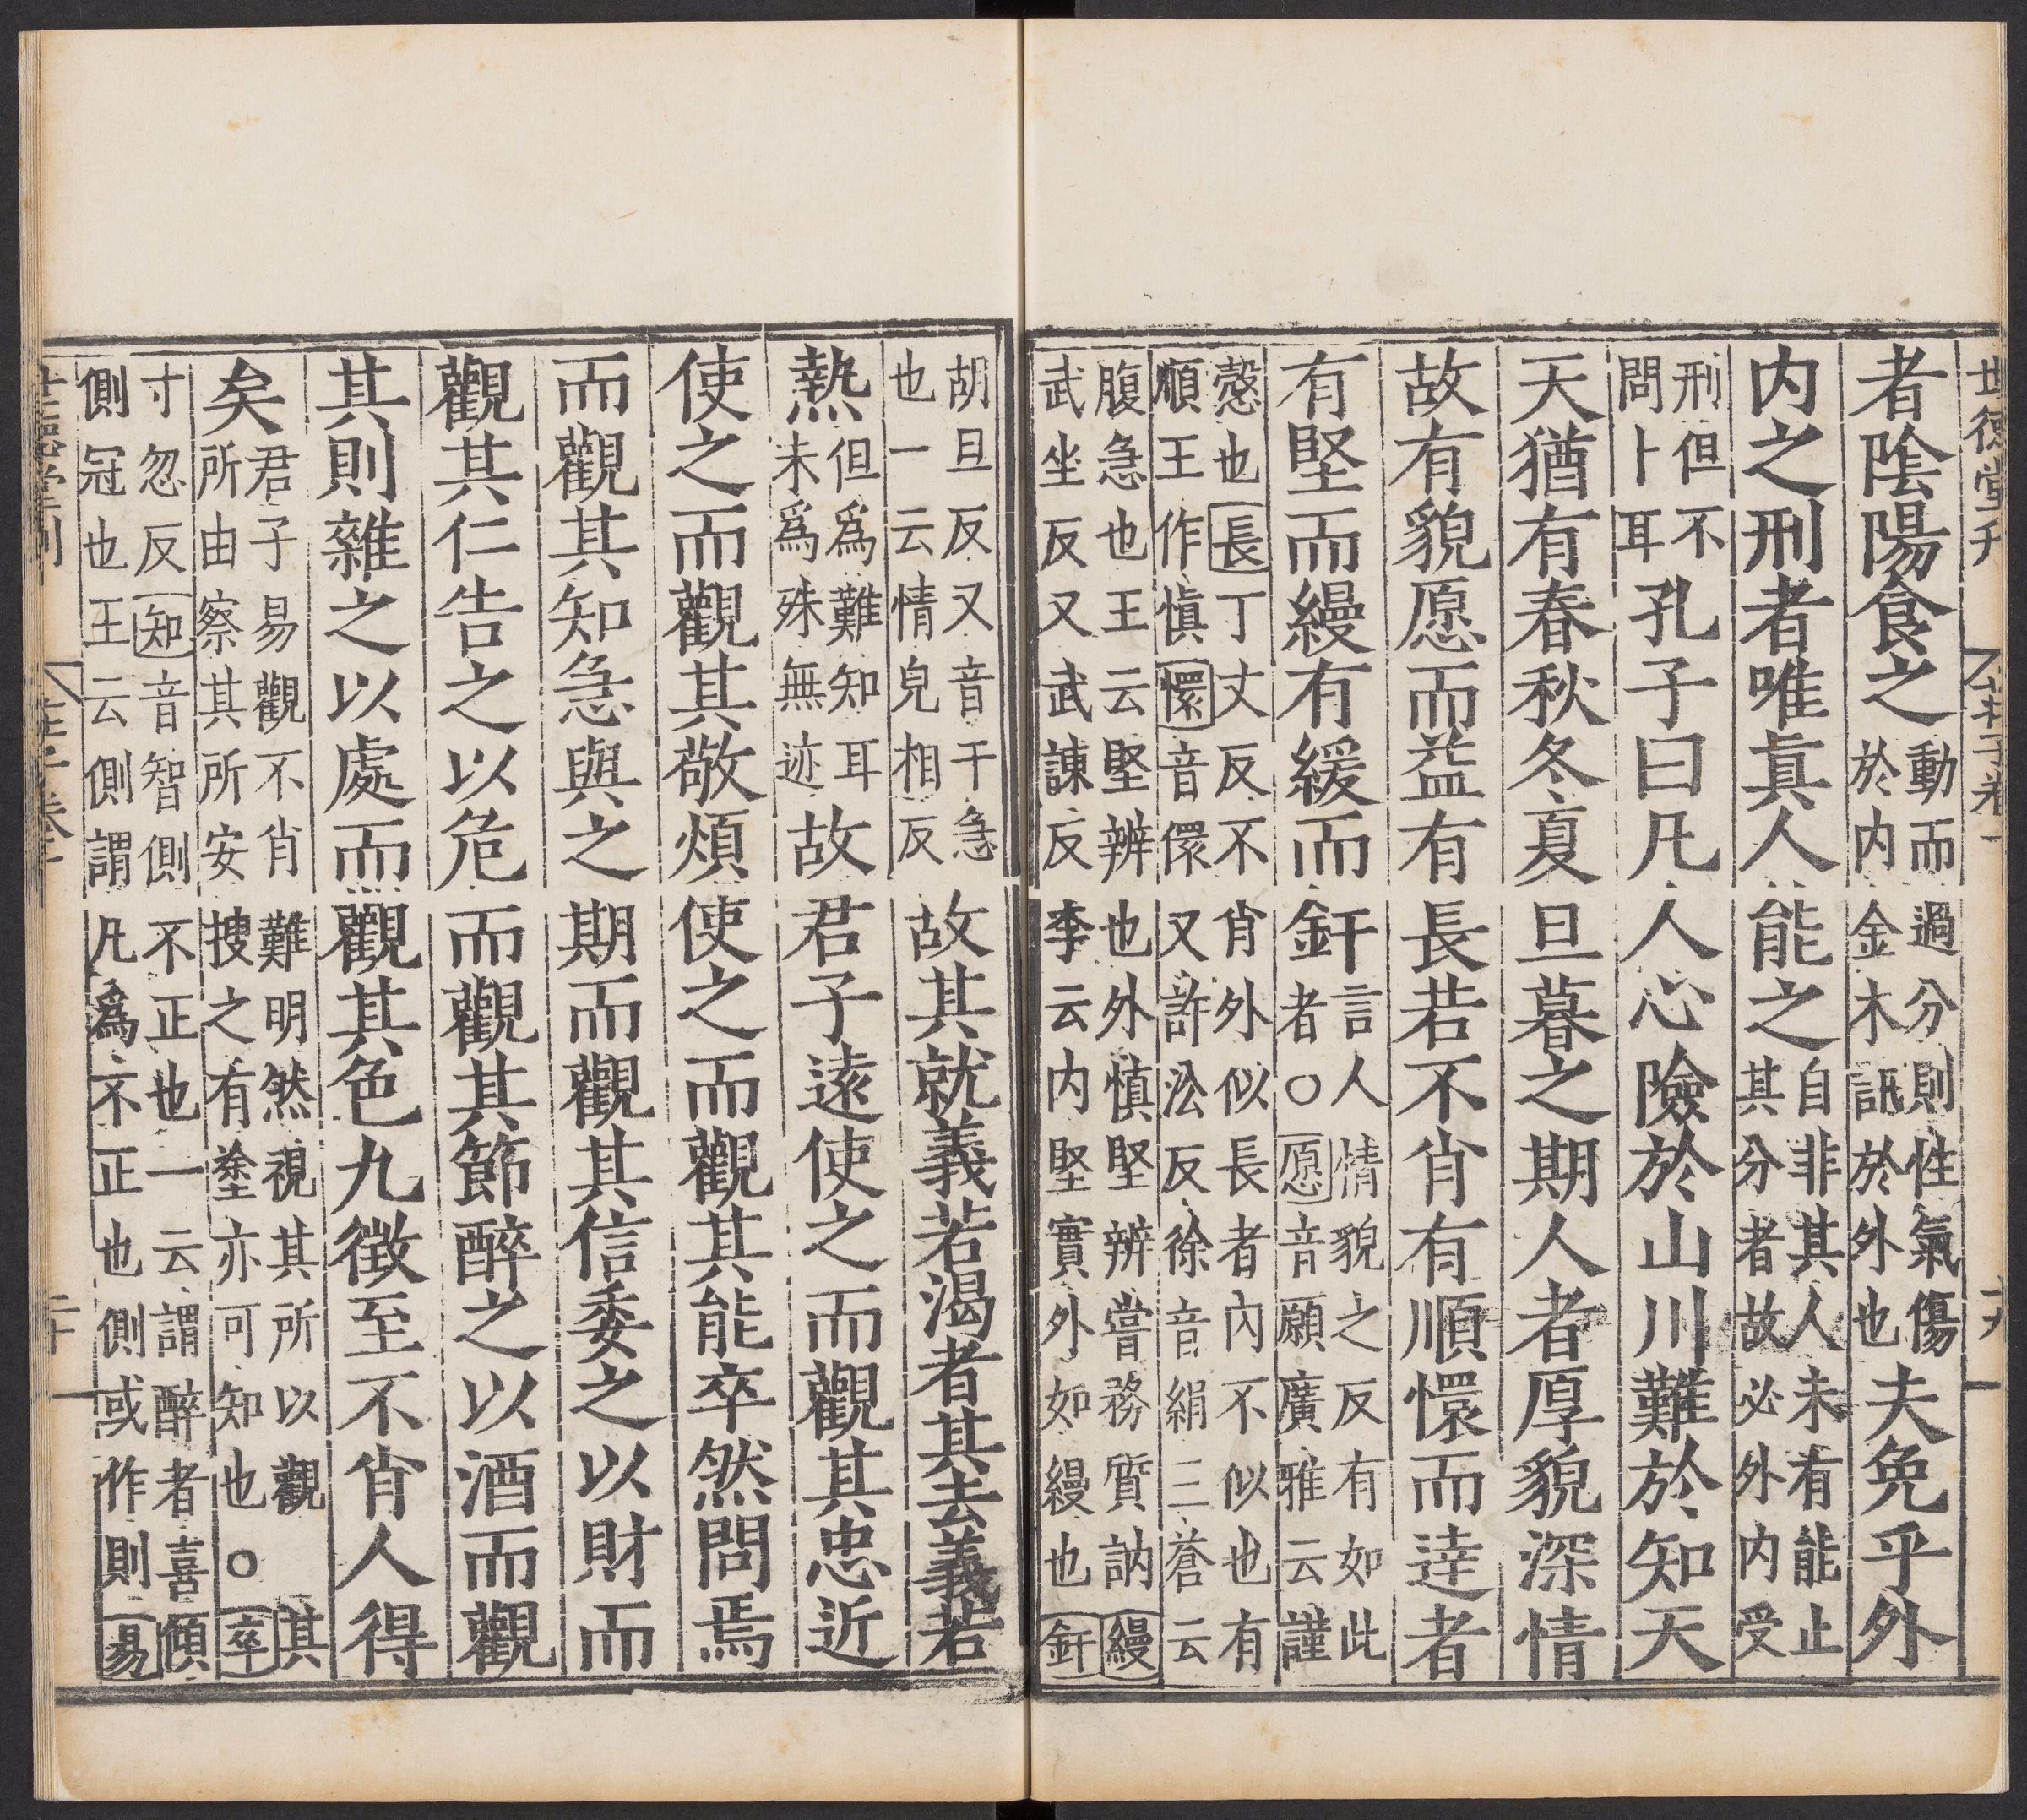 世德堂刊 莊子卷十 十九
者陰陽食之動而過分則性氣傷於内金木訊於外也夫免乎外
内之刑者唯真人能之自非其人未有能止其分者故必外内受
刑但不問卜耳孔子曰凡人心險於山川難於知天
天猶有春秋冬夏旦暮之期人者厚貌深情
故有貌愿而益有長若不肖有順懁而達者
有堅而縵有緩而釬言人情貌之反有如此者○愿音願廣雅云謹
慤也長丁丈反不肖外似長者内不似也有
順王作慎懁音儇又許沿反徐音絹三蒼云
腹急也王云堅辨也外慎堅辨嘗務質訥縵
武坐反又武諫反李云内堅實外如縵也釬
胡旦反又音干急也一云情皃相反故其就義若渴者其去義若
熱但爲難知耳未爲殊無迹故君子遠使之而觀其忠近
使之而觀其敬煩使之而觀其能卒然問焉
而觀其知急與之期而觀其信委之以財而
觀其仁告之以危而觀其節醉之以酒而觀
其則雜之以處而觀其色九徵至不肖人得
矣君子易觀不肖難明然視其所以觀其所由察其所安搜之有塗亦可知也○卒
寸忽反知音智側不正也一云謂醉者喜傾
側冠也王云側謂凡爲不正也側或作則易
世德堂刊 莊子卷十 二十